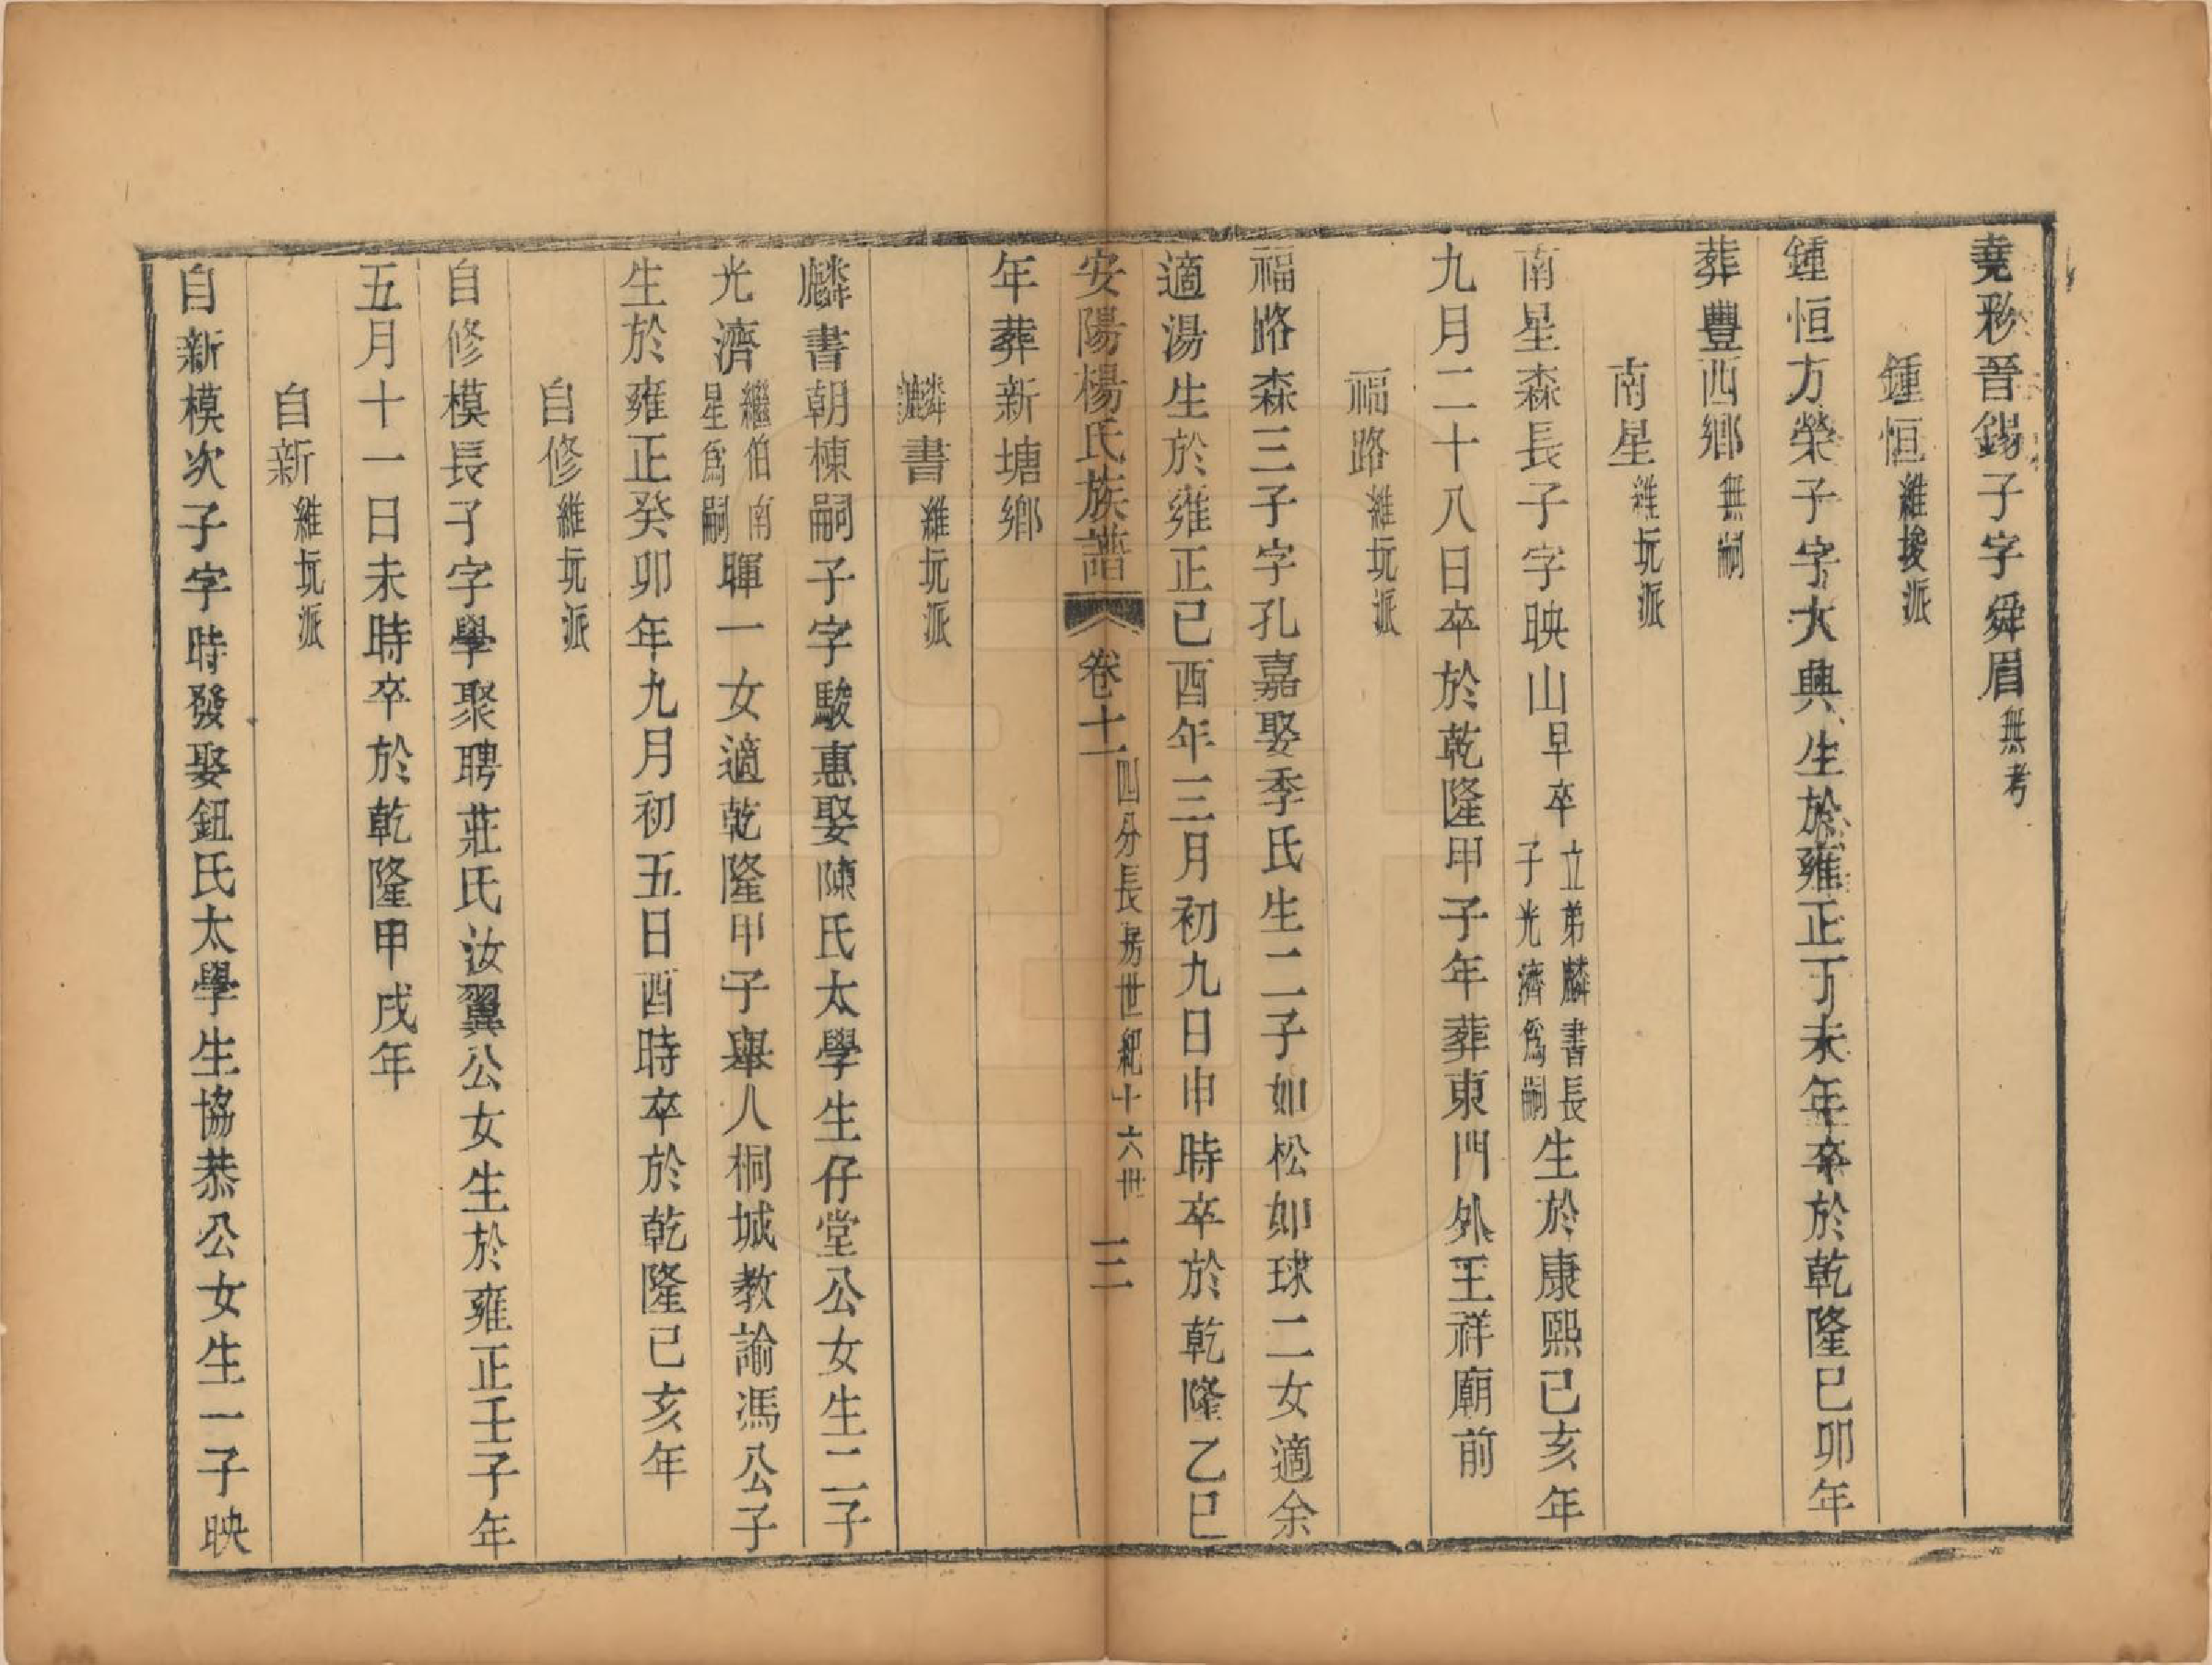 堯彩晉錫子字舜眉無考
鍾恒維埈派
鍾恒方榮子字大興生於雍正丁未年卒於乾隆己卯年
葬豐西鄉無嗣
南星維坃派
南星森長子字映山早卒立弟麟書長子光濟爲嗣生於康熙己亥年
九月二十八日卒於乾隆甲子年葬東門外王祥廟前
福路維坃派
福路森三子字孔嘉娶季氏生二子如松如球二女適余
適湯生於雍正己酉年三月初九日申時卒於乾隆乙巳
安陽楊氏族譜 卷十一 四分長房世紀十六世 三
年葬新塘鄉
麟書維坃派
麟書朝棟嗣子字駿惠娶陳氏太學生仔堂公女生二子
光濟繼伯南星爲嗣暉一女適乾隆甲子舉人桐城教諭馮公子
生於雍正癸卯年九月初五日酉時卒於乾隆己亥年
自修維坃派
自修模長子字學聚聘莊氏汝翼公女生於雍正壬子年
五月十一日未時卒於乾隆甲戌年
自新維坃派
自新模次子字時發娶鈕氏太學生協恭公女生一子映